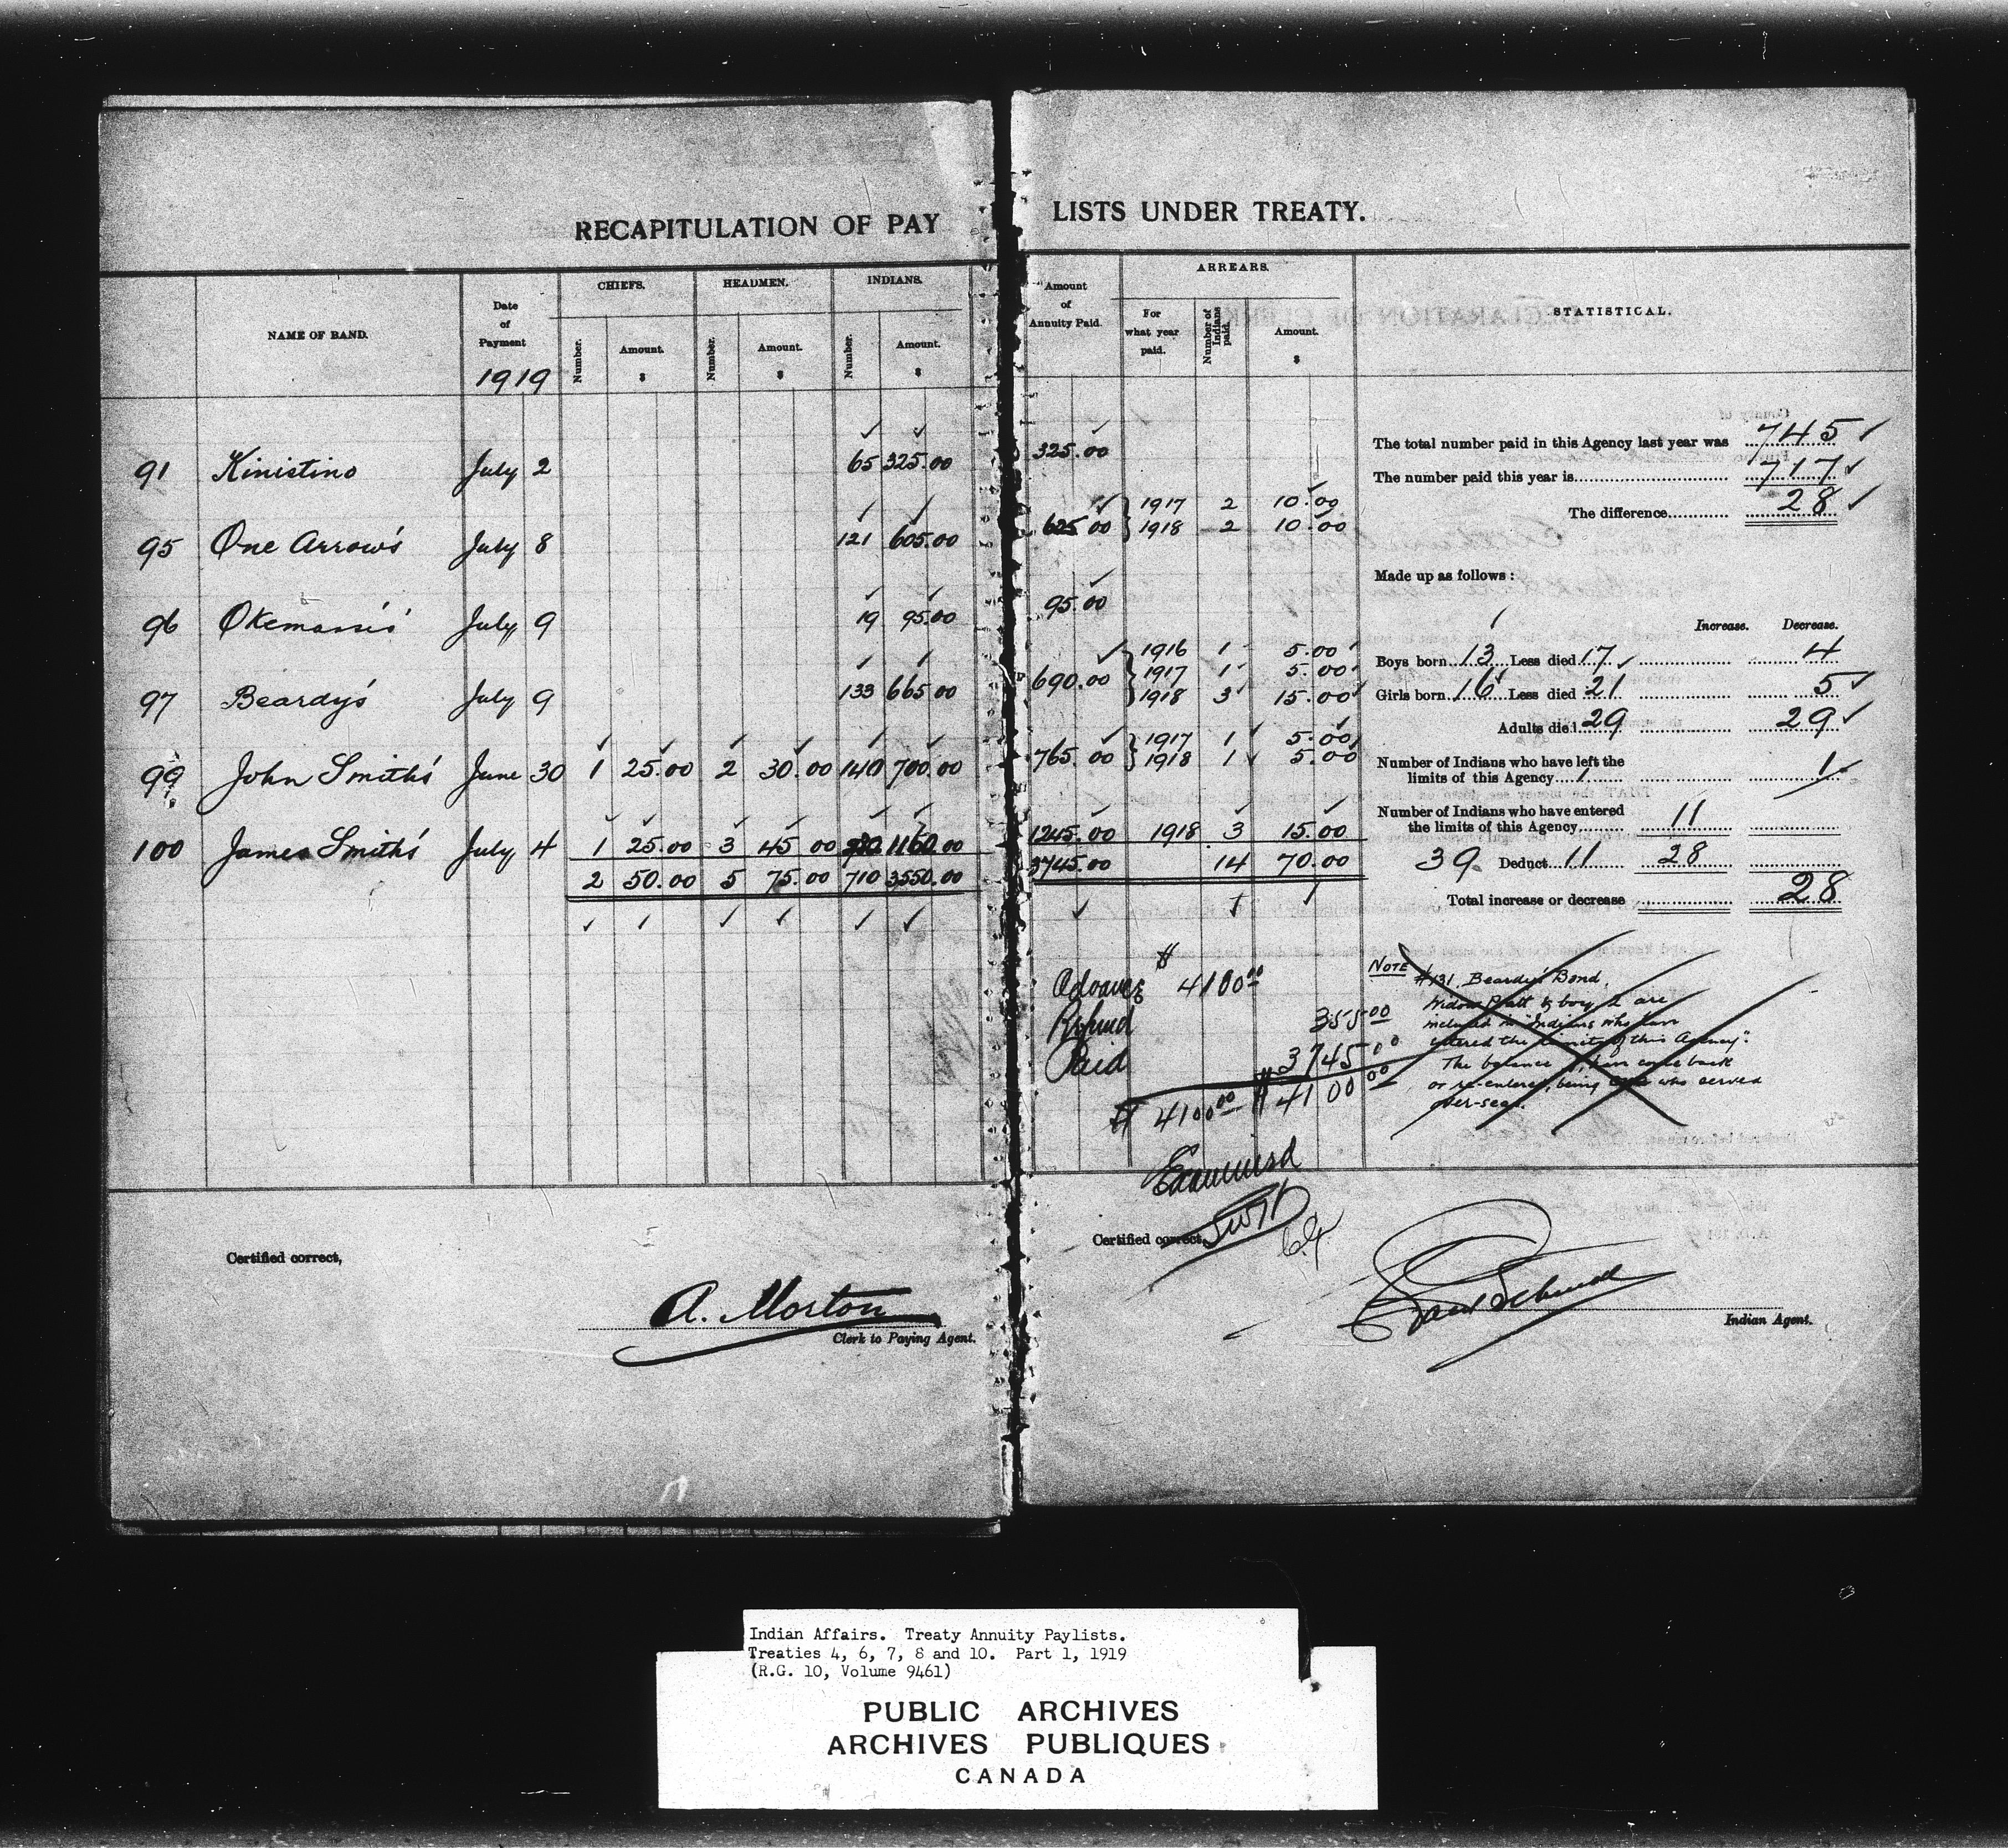 RECAPITULATION OF PAY LISTS UNDER TREATY.
NAME OF BAND.
Date of Payment 1919
CHIEFS. Number. Amount. $
HEADMEN. Number. Amount. $
INDIANS. Number. Amount. $
Amount of Annuity Paid.
ARREARS. For what year paid. Number of Indians paid. Amount. $
STATISTICAL.
91 Kinistino July 2 65 325.00 325.00
95 One Arrow's July 8 121 605.00 625.00 1917 2 10.00
1918 2 10.00
96 Okemassis' July 9 19 95.00 95.00
97 Beardy's July 9 133 665.00 690.00 1916 1 5.00
1917 1 5.00
1918 3 15.00
99 John Smith's June 30 1 25.00 2 30.00 140 700.00 765.00 1917 1 5.00
1918 1 5.00
100 James Smith's July 4 1 25.00 3 45.00 232 1160.00 1245.00 1918 3 15.00
2 50.00 5 75.00 710 3550.00 3745.00 14 70.00
The total number paid in this Agency last year was 745
The number paid this year is 717
The difference 28
Made up as follows:
Increase. Decrease.
Boys born 13 Less died 17 4
Girls born 16 Less died 21 5
Adults died 29 29
Number of Indians who have left the
limits of this Agency 1 1
Number of Indians who have entered
the limits of this Agency 11
39 Deduct 11 28
Total increase or decrease 28
Advance $ 4100.00
Refund 355.00
Paid 3745.00
$ 4100.00 $ 4100.00
NOTE #131, Beardy's Band.
Widow Pratt & boy 2 are
included in "Indians who have
entered the limits of this Agency".
The balance, 9, have come back
or re-entered, being who served
over-seas.
Examined
Certified correct,
A. Morton
Clerk to Paying Agent.
Certified correct,
Indian Agent.
Indian Affairs. Treaty Annuity Paylists.
Treaties 4, 6, 7, 8 and 10. Part 1, 1919
(R.G. 10, Volume 9461)
PUBLIC ARCHIVES
ARCHIVES PUBLIQUES
CANADA